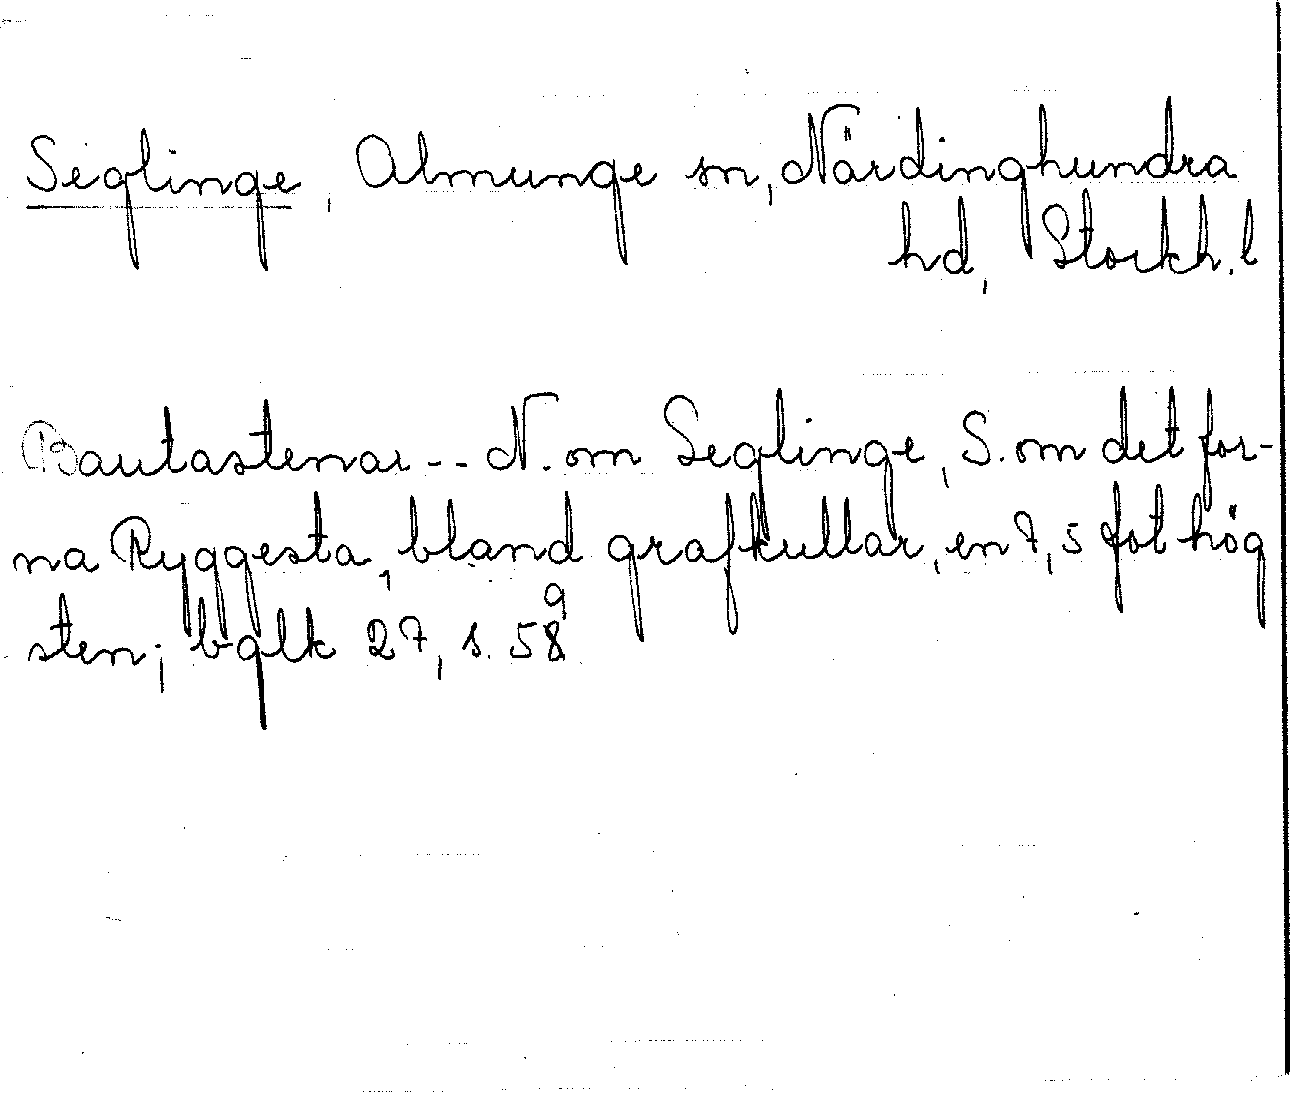 Seglinge, Almunge sn, Närdinghundra
hd, Stockh. l
Bautastenar -- N. om Seglinge, S. om det for-
na Ryggesta, bland grafkullar, en 7,5 fot hög
sten; bglk 27, s. 58
9